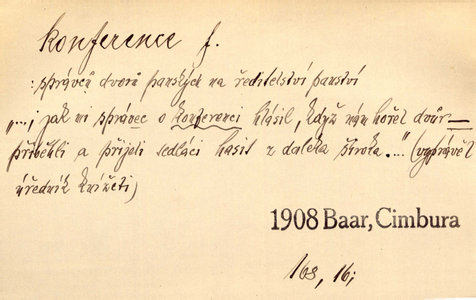 konference f.
: správců dvorů panských na ředitelství panství
„...; jak mi správec o konferenci hlásil, když nám hořel dvůr—
přiběhli a přijeli sedláci hasit z daleka široka...." (vyprávěl
úředník knížeti)
1908 Baar, Cimbura
168, 16;